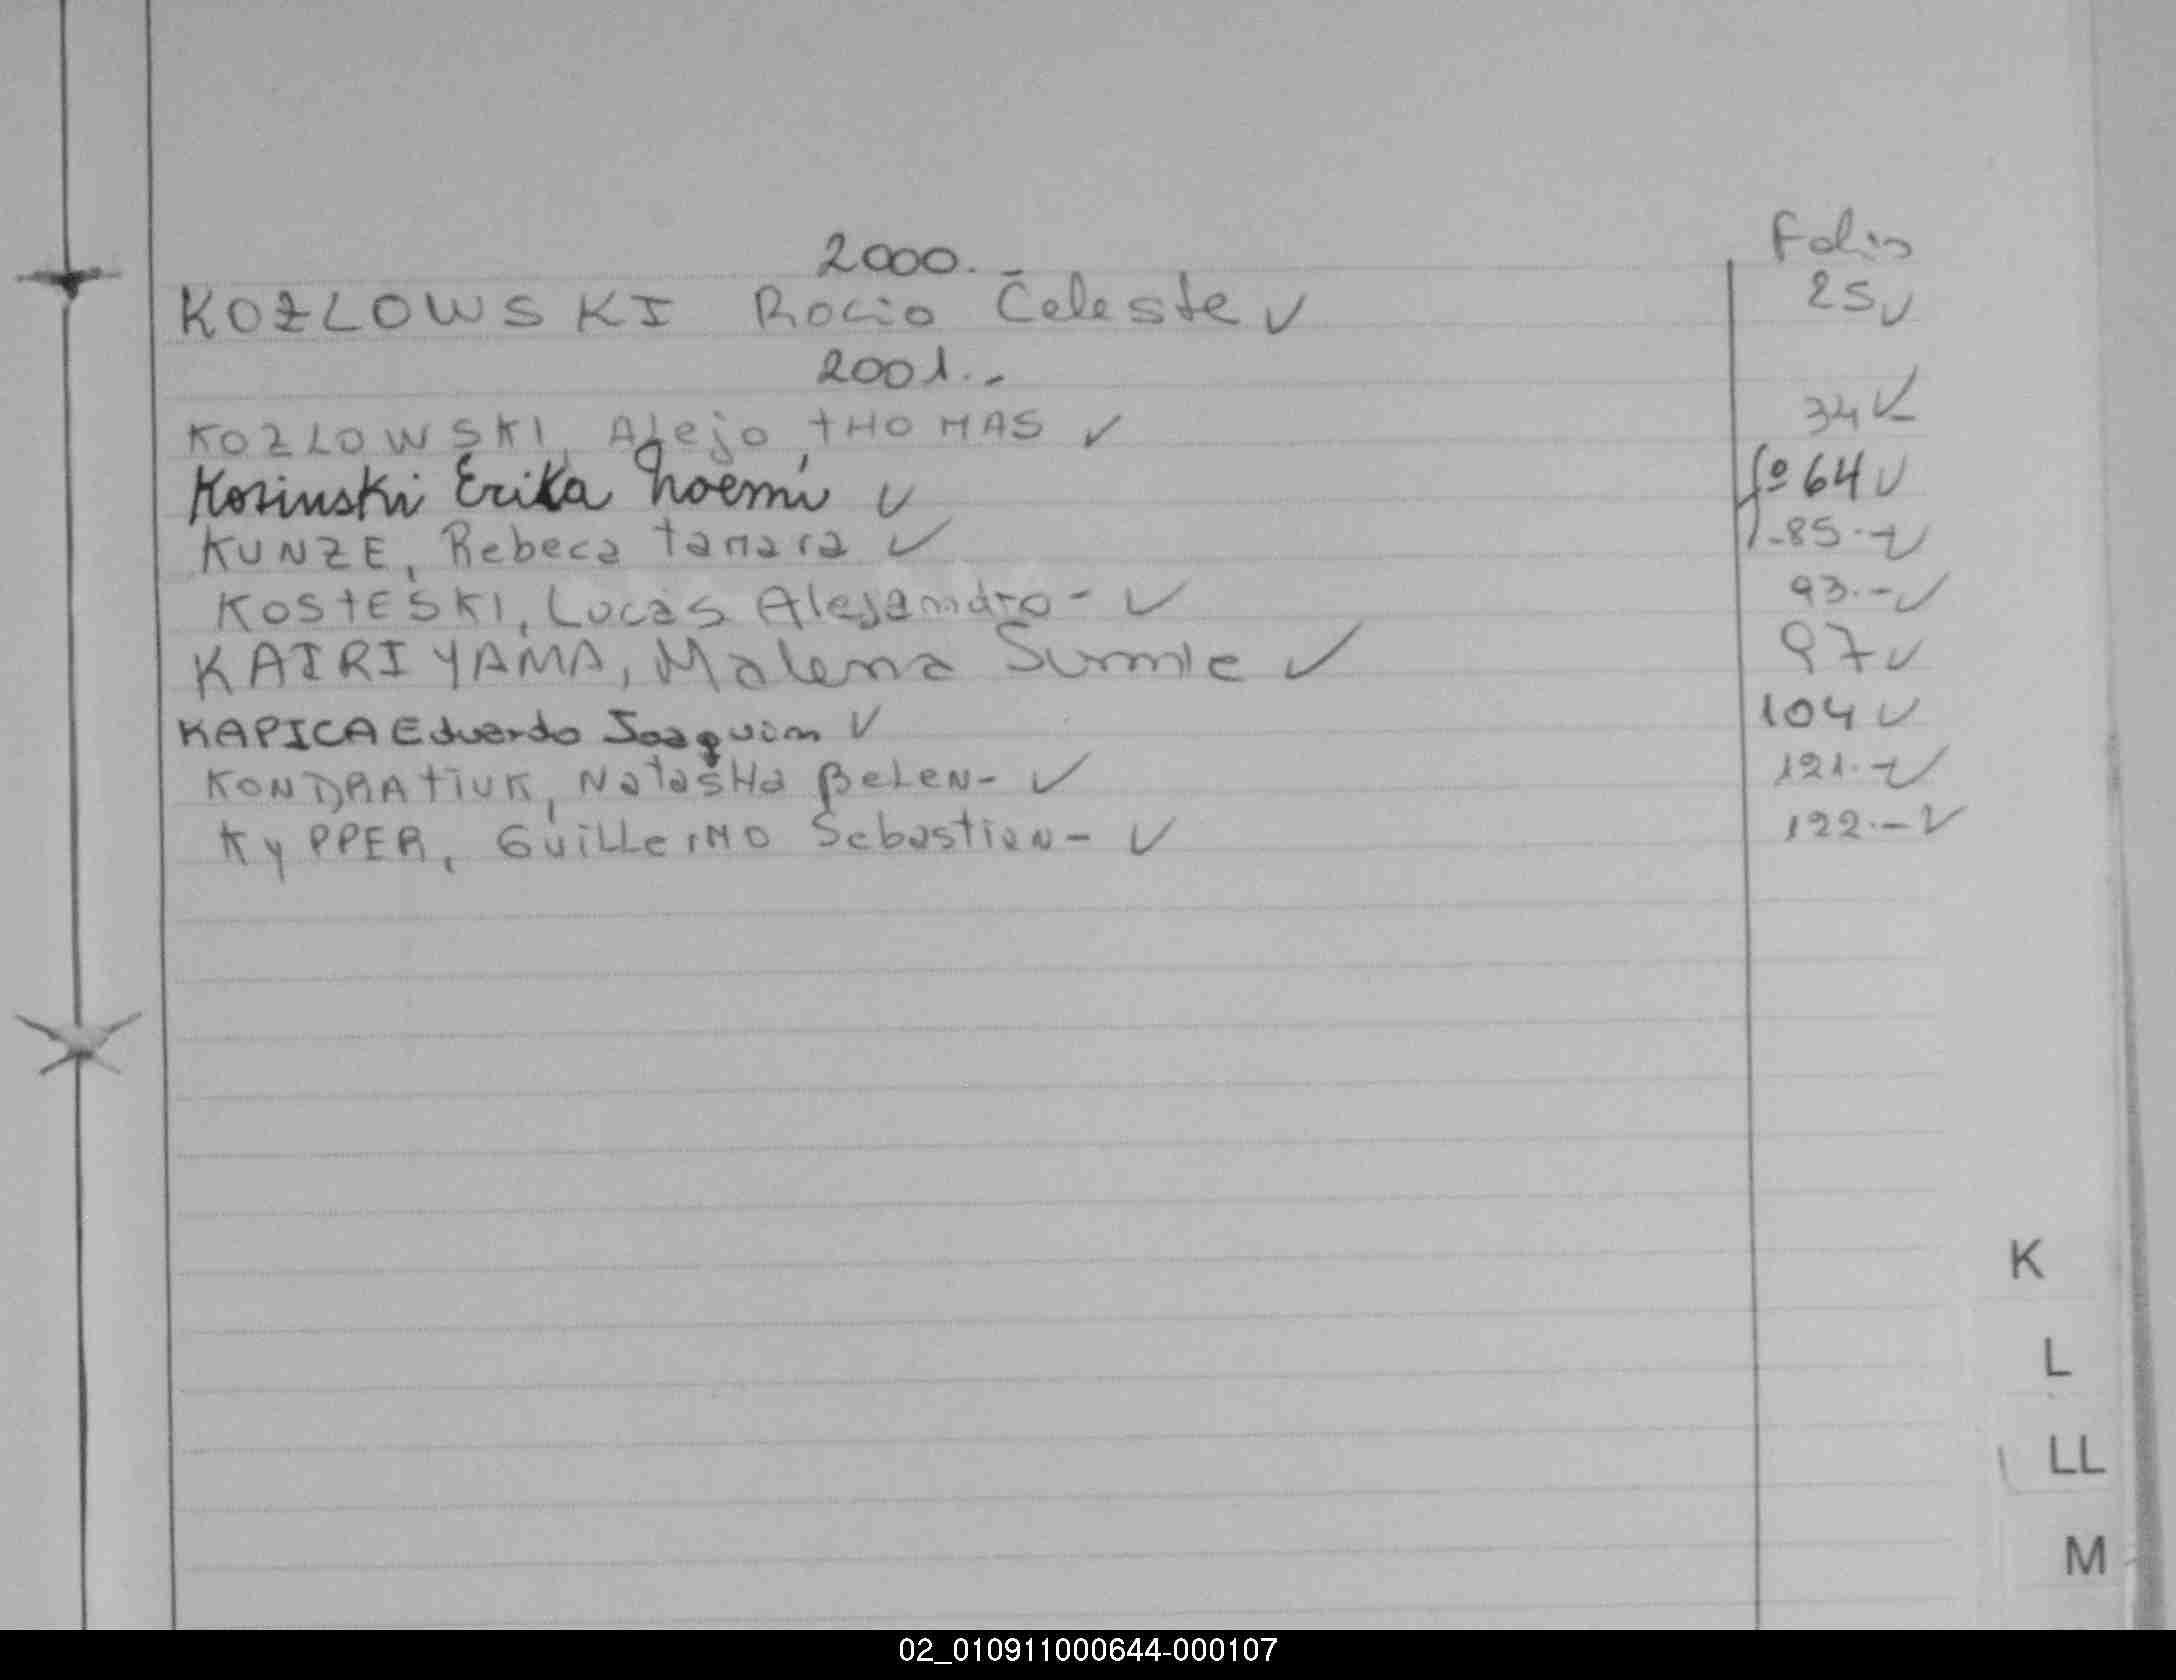 2000.- Folio
KOZLOWSKI Rocio Celeste ✓ 25 ✓
2001.-
KOZLOWSKI, Alejo THOMAS ✓ 34 ✓
Kosinski Erika Noemi ✓ fº 64 ✓
KUNZE, Rebeca Tamara ✓ 85.- ✓
KOSTESKI, Lucas Alejandro- ✓ 93.- ✓
KAIRIYAMA, Malena Sumie ✓ 97 ✓
KAPICA Eduardo Joaquim ✓ 104 ✓
KONDRATIUK, NatasHa BeLeN- ✓ 121.- ✓
KyPPER, GuiLLeRMO Sebastian- ✓ 122.- ✓
K
L
LL
M
02_010911000644-000107